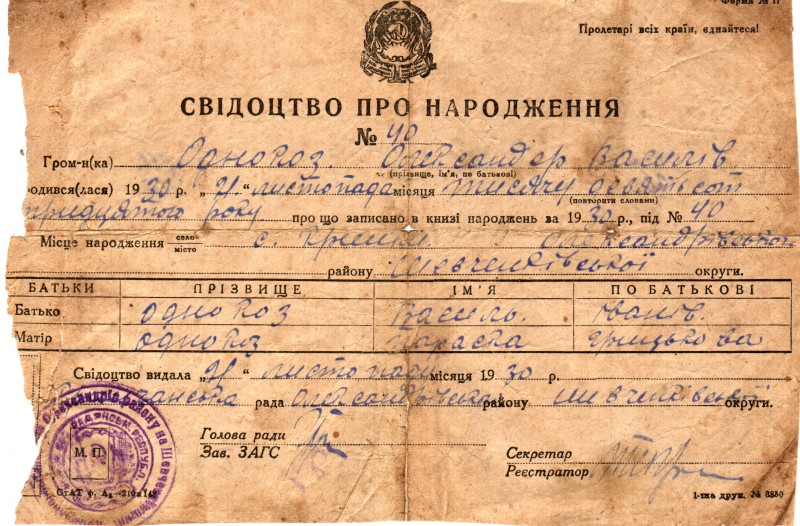 Форма № 17
Пролетарі всіх країн, єднайтеся!
СВІДОЦТВО ПРО НАРОДЖЕННЯ
№ 40
Гром-н(ка) Однокоз Олександер Василів
(прізвище, ім'я, по батькові)
родився(лася) 1930 р. „21" листопада місяця тисячу девятьсот
(повторити словами)
тридцятого року про що записано в книзі народжень за 1930 р., під № 40
Місце народження село місто с. Олександрівського
району Шевченківської округи.
БАТЬКИ ПРІЗВИЩЕ ІМ'Я ПО БАТЬКОВІ
Батько Однокоз Василь Іванів.
Матір Однокоз Параска Грицькова
Свідоцтво видала „21" листопада місяця 1930 р.
рада Олександрівського району Шевченківської округи.
Голова ради
Зав. ЗАГС
Секретар
Реєстратор
М. П.
СтАТ ф. А₅—210х148
1-ша друк. № 3850